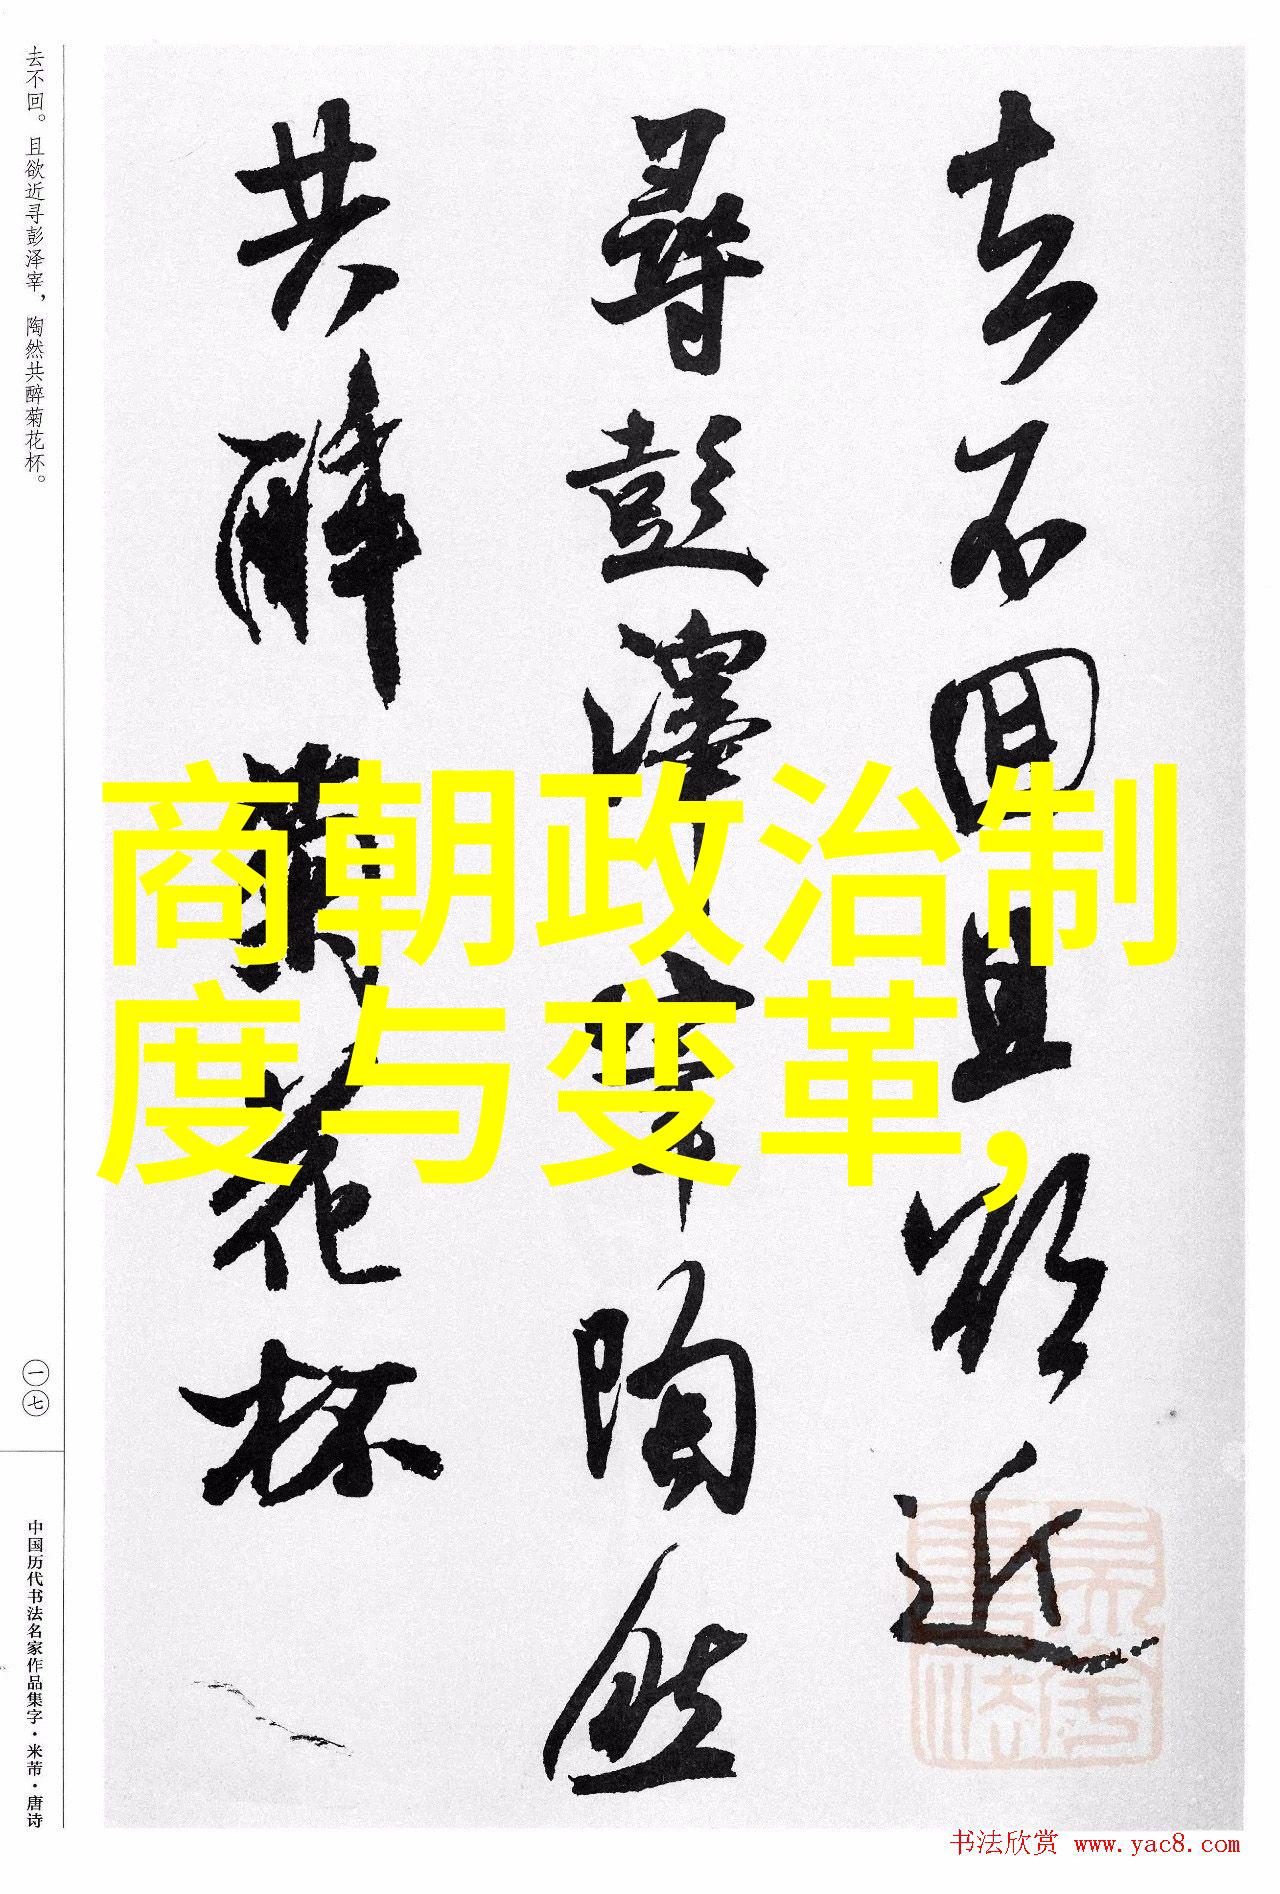 去不回且欲近
尋彭澤宰陶然
共醉菊花杯
商朝政治制
度与变革，
去不回。且欲近寻彭泽宰，陶然共醉菊花杯。
一七
中国历代书法名家作品集字·米芾·唐诗
书法欣赏 www.yac8.com